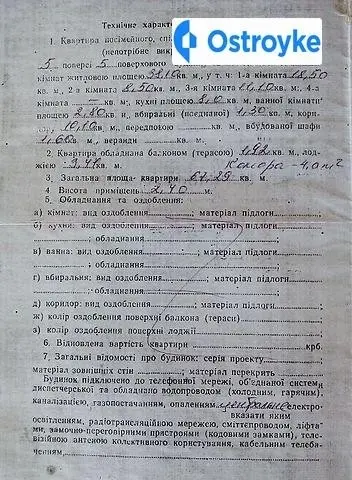 Технічне харак
Ostroyke
1. Квартира посімейного, спі
(непотрібне вик
5 поверсі 5 поверхового
кімнат житловою площею 38,10 кв. м, у т. ч: 1-а кімната 18,50
кв. м, 2-а кімната 8,50 кв. м, 3-я кімната 11,10 кв. м, 4-а
кімната — кв. м, кухні площею кв. м, ванної кімнати
площею 2,80 кв. м, вбиральні (поєднаної) 1,30 кв. м, кори-
кв. м, передпокою кв. м, вбудованої шафи
кв. м, веранди кв. м.
2. Квартира обладнана балконом (терасою) кв. м, лод-
жією кв. м.
3. Загальна площа квартири 61,29 кв. м.
4. Висота приміщень 2,40 м.
5. Обладнання та оздоблення:
а) кімнат: вид оздоблення; матеріал підлоги
б) кухні: вид оздоблення; матеріал підлоги
; обладнання
в) ванна: вид оздоблення; матеріал підлоги
; обладнання
г) вбиральня: вид оздоблення; матеріал підлоги
; обладнання
д) коридор: вид оздоблення; матеріал підлоги
ж) колір оздоблення поверхні балкона (тераси)
з) колір оздоблення поверхні лоджії
6. Відновлена вартість квартири крб.
7. Загальні відомості про будинок: серія проекту
матеріал зовнішніх стін ; матеріал перекрить
Будинок підключено до телефонної мережі, об'єднаної систем
диспетчерської та обладнано водопроводом (холодним, гарячим),
каналізацією, газопостачанням, опаленням центральне електро-
вказати яким
освітленням, радіотрансляційною мережею, сміттєпроводом, ліфта-
ми, замочно-переговорними пристроями (кодовими замками), теле-
візійною антеною колективного користування, кабельним телеба-
ченням